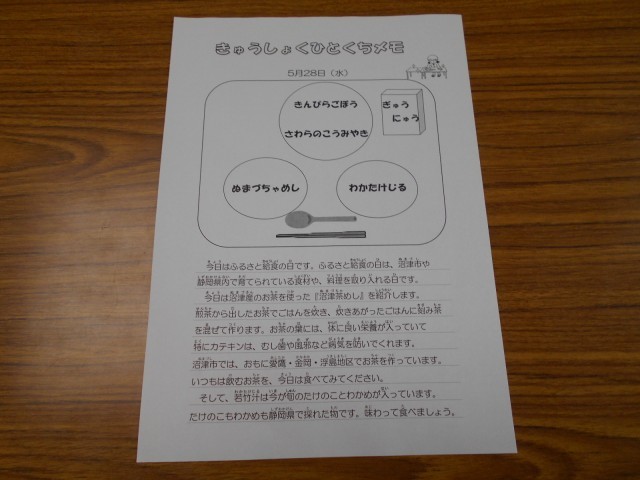 きゅうしょくひとくちメモ
5月28日（水）
きんぴらごぼう
さわらのこうみやき
ぎゅう
にゅう
ぬまづちゃめし
わかたけじる
今日はふるさと給食の日です。ふるさと給食の日は、沼津市や
静岡県内で育てられている食材や、料理を取り入れる日です。
今日は沼津産のお茶を使った『沼津茶めし』を紹介します。
煎茶から出したお茶でごはんを炊き、炊きあがったごはんに刻み茶
を混ぜて作ります。お茶の葉には、体に良い栄養が入っていて
特にカテキンは、むし歯や風邪など病気を防いでくれます。
沼津市では、おもに愛鷹・金岡・浮島地区でお茶を作っています。
いつもは飲むお茶を、今日は食べてみてください。
そして、若竹汁は今が旬のたけのことわかめが入っています。
たけのこもわかめも静岡県で採れた物です。味わって食べましょう。